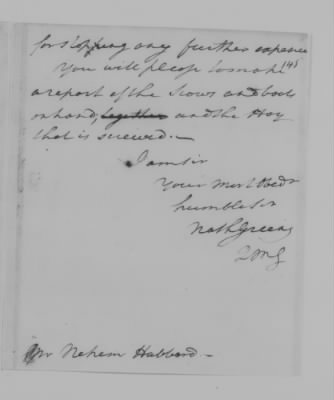 for stopping any further expence
145
You will please to make
a report of the Scows and boats
on hand, together and the Hay
that is screwed.—
I am sir
Your Most Obedt
humble Sr
Nath Greene
QMG
Mr Nehem Hubbard —